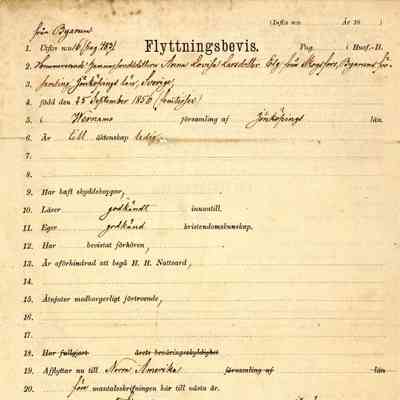 från Byarum
(Infört num År 18 )
1. Utfärd. num 16 (Pag 483) Flyttningsbevis. Pag. i Husf.-B.
2. Anna Lovisa Larsdotter från Skogsfors, Byarums för-
3. samling Jönköpings län, Sverige,
4. född den 25 September 1856 (femtiosex)
5. i Wernamo församling af Jönköpings län.
6. Är till äktenskap ledig,
7.
8.
9. Har haft skyddskoppor,
10. Läser godkändt innantill.
11. Eger godkänd kristendomskunskap.
12. Har bevistat förhören,
13. Är oförhindrad att begå H. H. Nattvard,
14.
15. Åtnjuter medborgerligt förtroende,
16.
17.
18. Har fullgjort årets beväringsskyldighet
19. Afflyttar nu till Norra Amerika församling af län
20. före mantalsskrifningen här till nästa år.